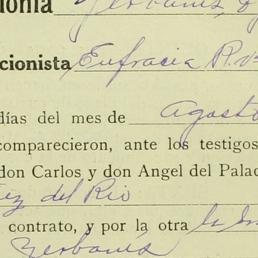 lonia Yerbanís, D
cionista Eufracia R. v
días del mes de Agosto
comparecieron, ante los testigos
don Carlos y don Angel del Palac
ez del Rio
contrato, y por la otra la
Yerbanís